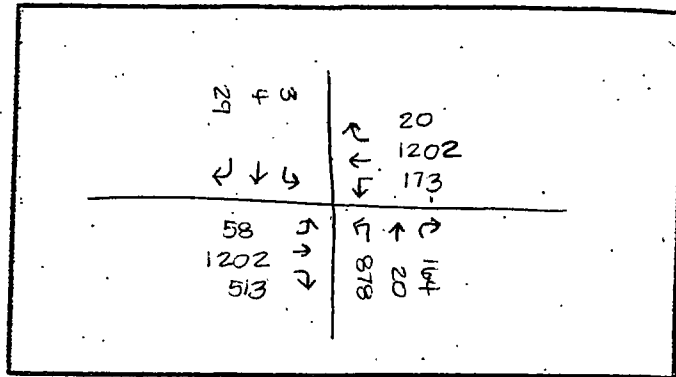 29 4 3
20
1202
173
58
1202
513
878 20 164